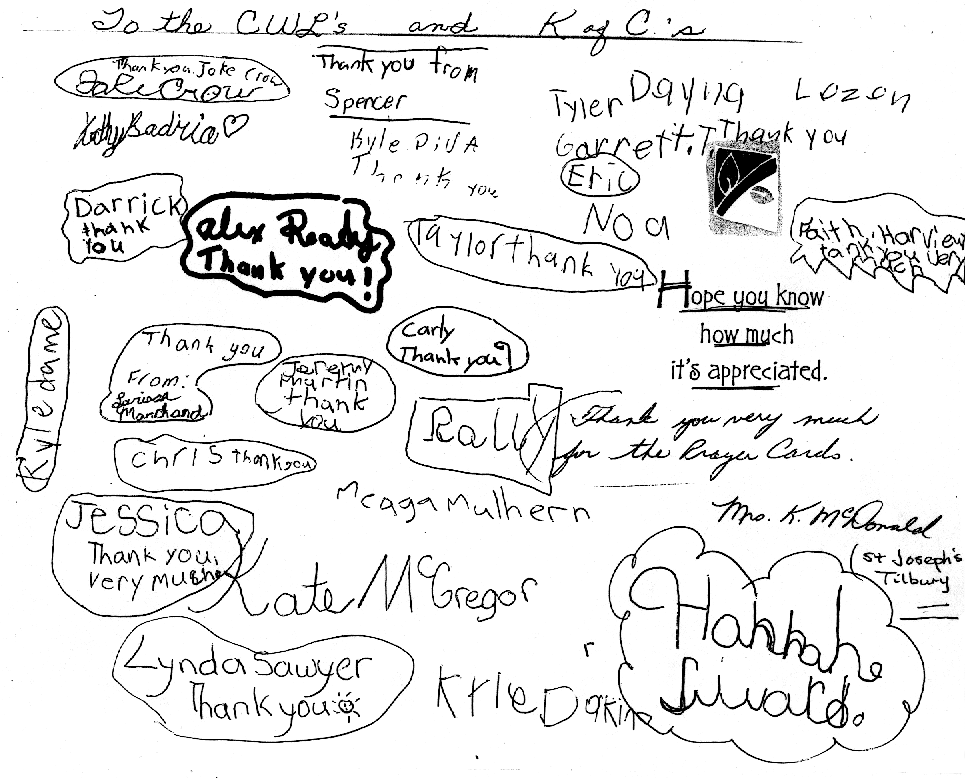 To the CWL's and K of C.'s
Thank you Jake Crow
Jake Crow
Kathy Badria
Thank you from
Spencer
Kyle
Thank you
Tyler Dayna Lozon
Garrett.T Thank you
Eric
Noa
Darrick
thank
you
alex Ready
Thank you!
Taylor thank you
Faith, Harview
tank you very
Hope you know
how much
it's appreciated.
Kyle dame
Thank you
From:
Larissa
Marchand
Jeremy
Martin
thank
you
Carly
Thank you
Rally
Thank you very much
for the Prayer Cards.
Chris thank you
Mcaga Mulhern
Mrs. K. McDonald
St Joseph's
Tilbury
Jessica
Thank you,
very mushe
Kate McGregor
Hannah
Siwards.
Lynda Sawyer
Thank you
Kyle Dakin
r